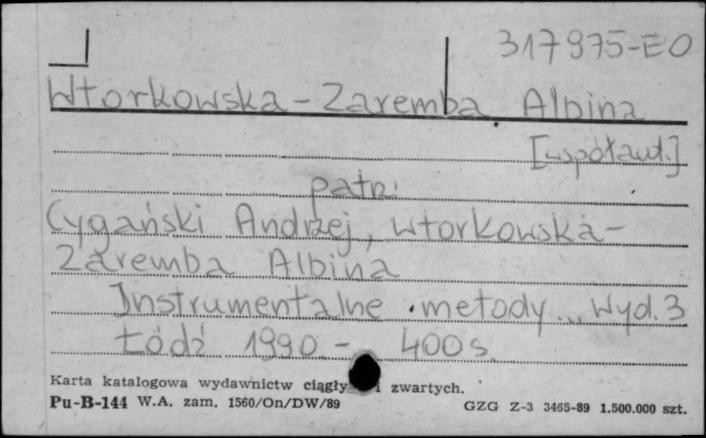 317975-EO
Wtorkowska-Zaremba, Albina
[współaut.]
patrz:
Cygański Andrzej, Wtorkowska-
Zaremba Albina
Instrumentalne metody... Wyd. 3
Łódź 1990.- 400 s.
Karta katalogowa wydawnictw ciągły i zwartych.
Pu-B-144 W.A. zam. 1560/On/DW/89 GZG Z-3 3465-89 1.500.000 szt.